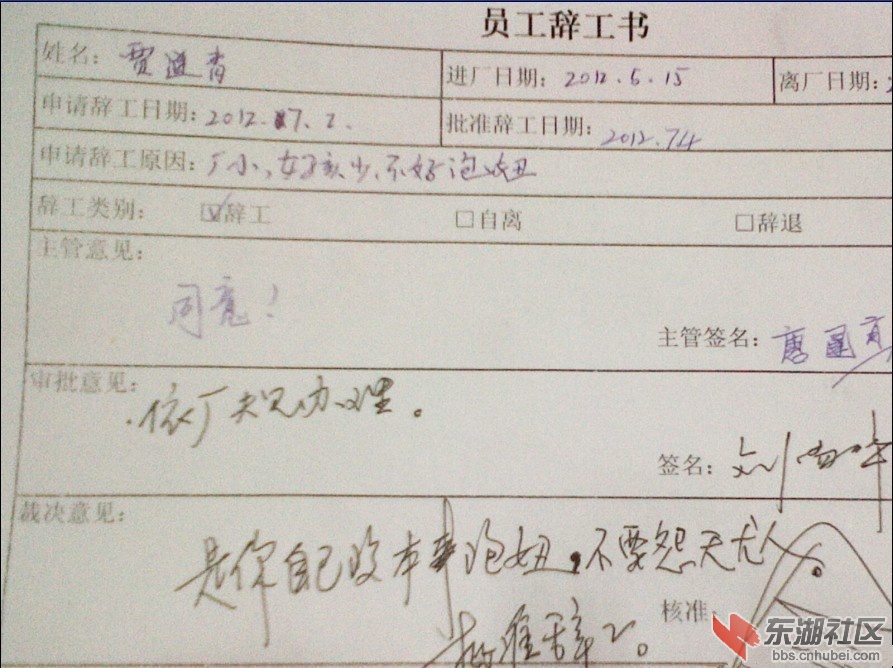 员工辞工书
姓名：贾进青 进厂日期：2012.6.15 离厂日期：
申请辞工日期：2012.7.2. 批准辞工日期：2012.7.4
申请辞工原因：厂小，女孩少，不好泡妞
辞工类别： ☑辞工 □自离 □辞退
主管意见：
同意！
主管签名：唐
审批意见：
依厂规办理。
签名：刘
裁决意见：
是你自己没本事泡妞，不要怨天尤人
核准：
批准辞工。
东湖社区
bbs.cnhubei.com